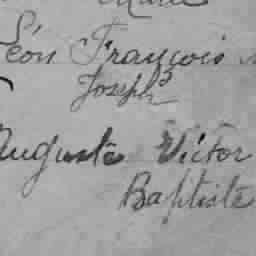 Léon François
Joseph
Auguste Victor
Baptiste